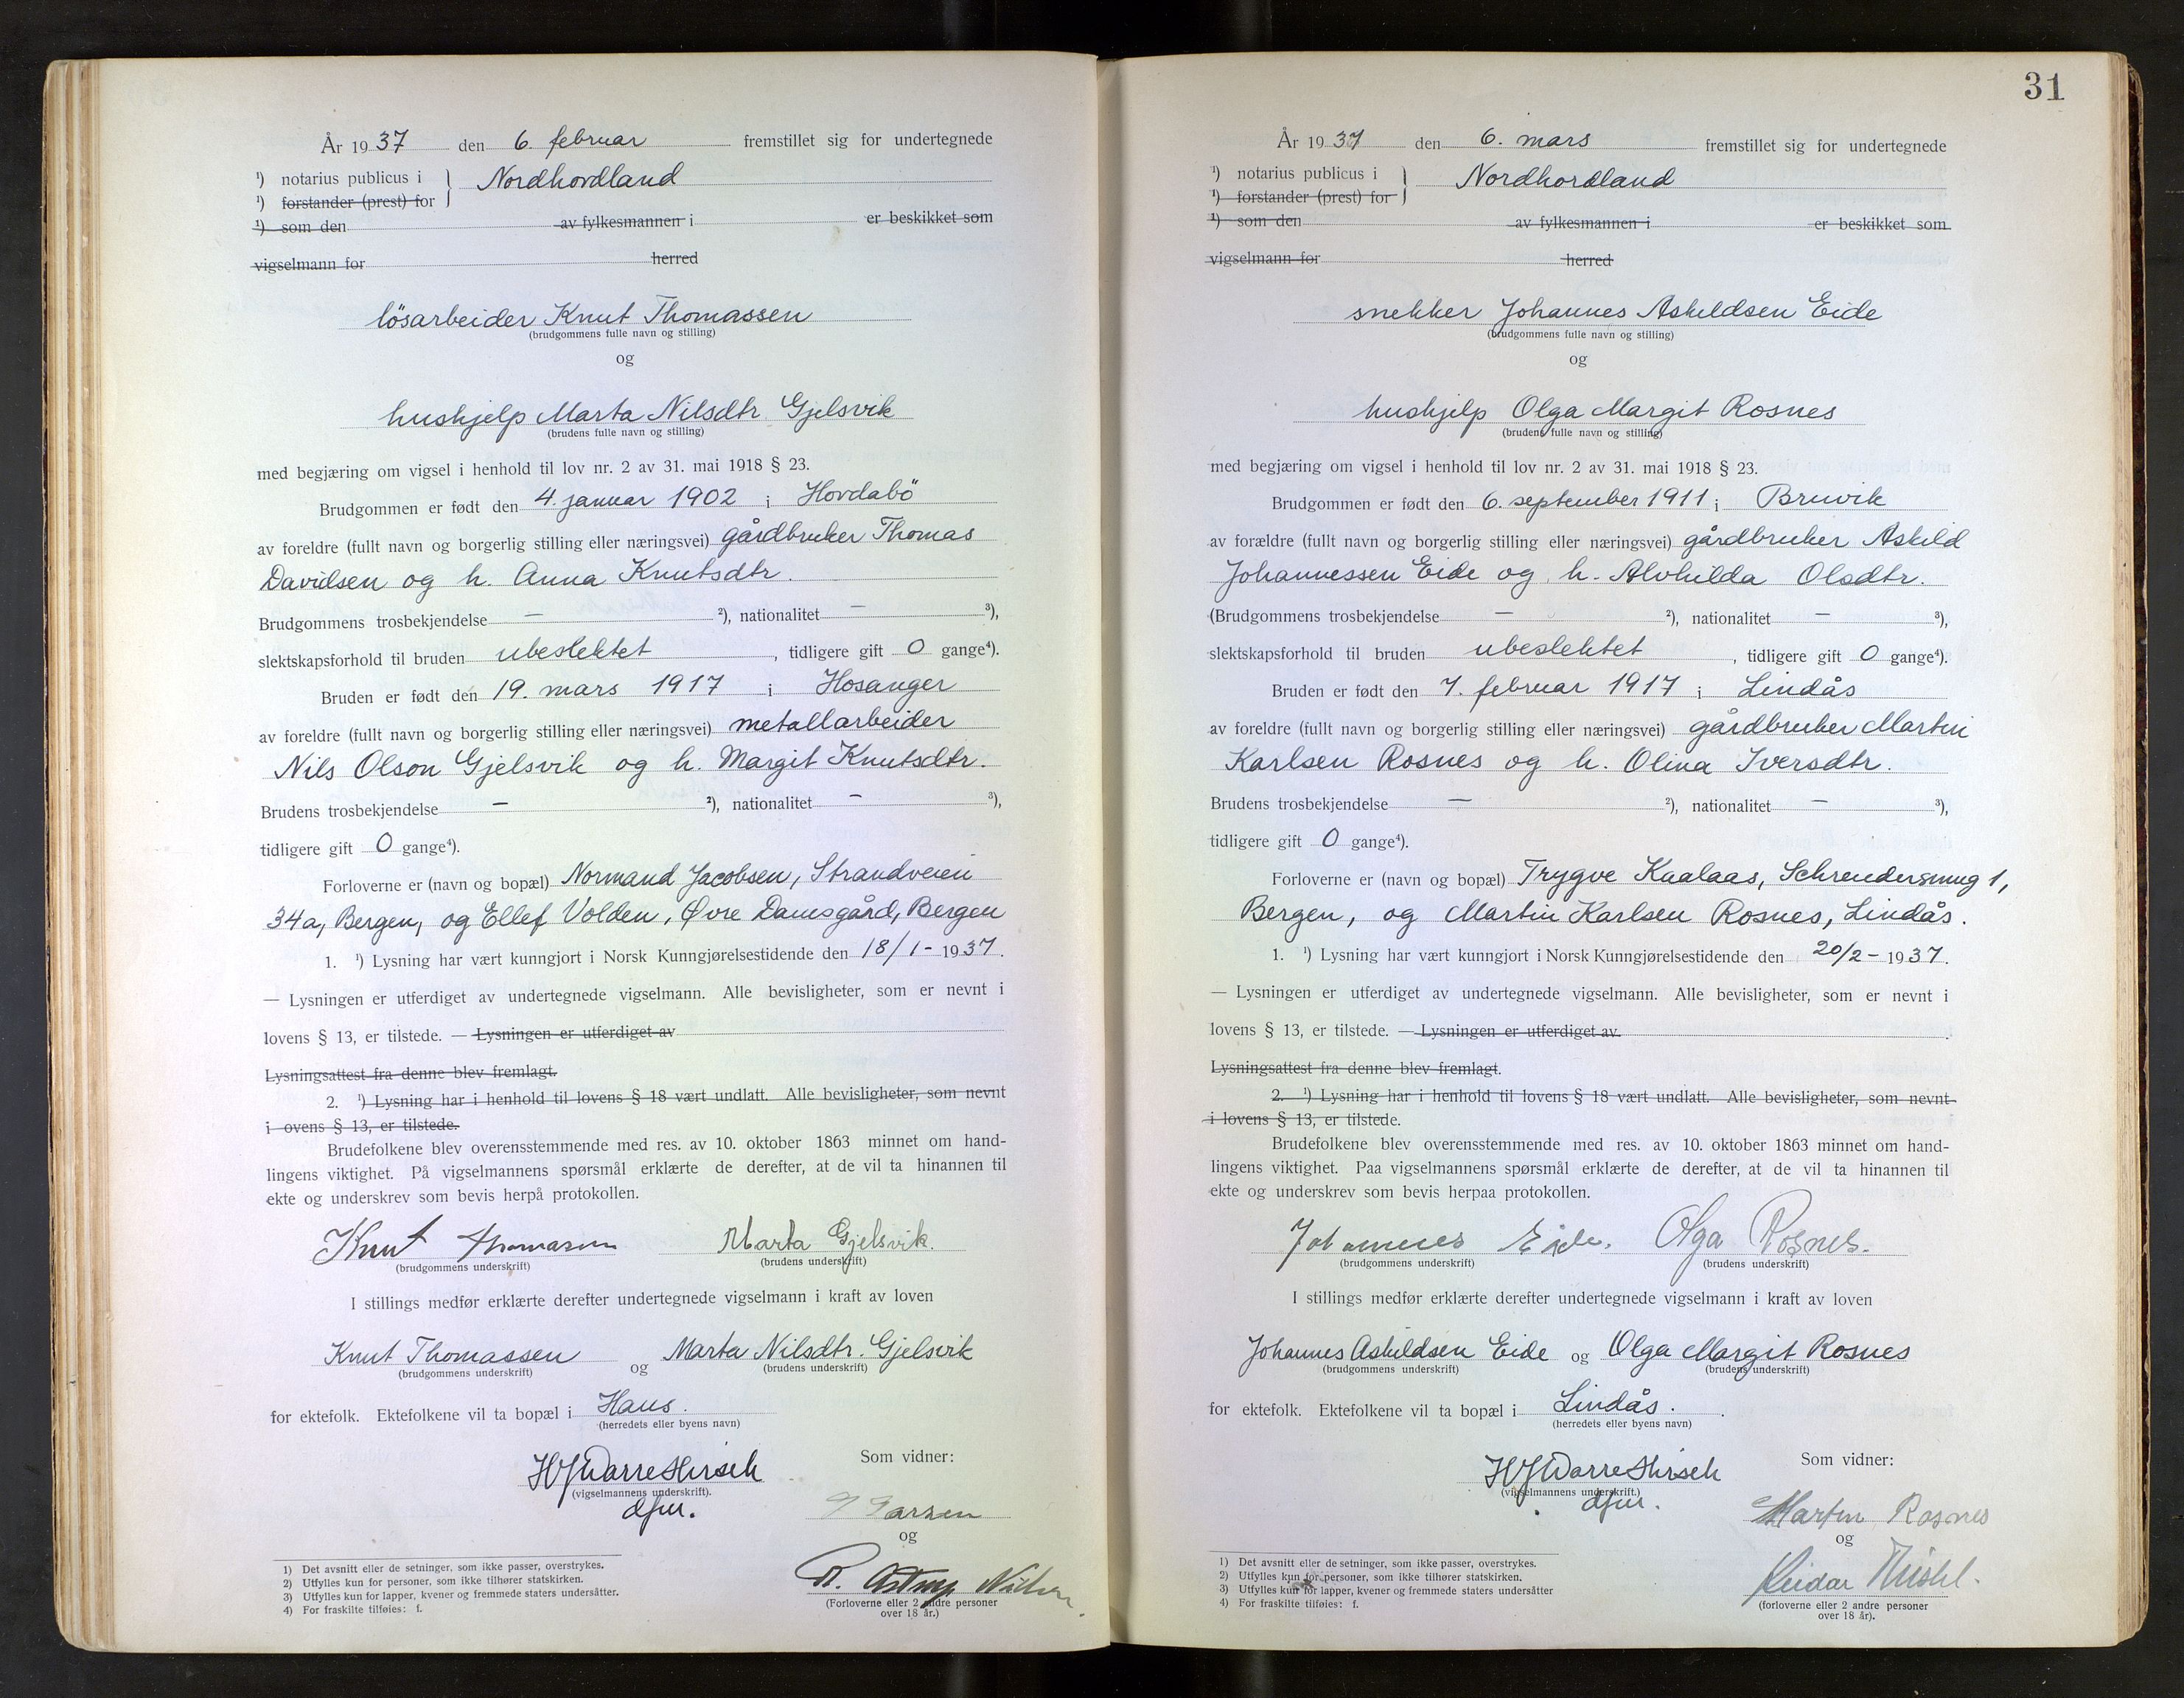 År 1937 den 6. februar fremstillet sig for undertegnede
¹) notarius publicus i } Nordhordland
¹) forstander (prest) for
¹) som den av fylkesmannen i er beskikket som
vigselmann for herred
lösarbeider Knut Thomassen
(brudgommens fulle navn og stilling)
og
hushjelp Marta Nilsdtr. Gjelsvik
(brudens fulle navn og stilling)
med begjæring om vigsel i henhold til lov nr. 2 av 31. mai 1918 § 23.
Brudgommen er født den 4. januar 1902 i Hordabö
av foreldre (fullt navn og borgerlig stilling eller næringsvei) gårdbruker Thomas
Davidsen og h. Anna Knutsdtr.
Brudgommens trosbekjendelse — ²), nationalitet — ³),
slektskapsforhold til bruden ubeslektet, tidligere gift 0 gange⁴).
Bruden er født den 19. mars 1917 i Hosanger
av foreldre (fullt navn og borgerlig stilling eller næringsvei) metallarbeider
Nils Olson Gjelsvik og h. Margit Knutsdtr.
Brudens trosbekjendelse — ²), nationalitet — ³),
tidligere gift 0 gange⁴).
Forloverne er (navn og bopæl) Normand Jacobsen, Strandveien
34a, Bergen, og Ellef Volden, Øvre Damsgård, Bergen
1. ¹) Lysning har vært kunngjort i Norsk Kunngjørelsestidende den 18/1- 1937.
— Lysningen er utferdiget av undertegnede vigselmann. Alle bevisligheter, som er nevnt i
lovens § 13, er tilstede. — Lysningen er utferdiget av
Lysningsattest fra denne blev fremlagt.
2. ¹) Lysning har i henhold til lovens § 18 vært undlatt. Alle bevisligheter, som nevnt
i ovens § 13, er tilstede.
Brudefolkene blev overensstemmende med res. av 10. oktober 1863 minnet om hand-
lingens viktighet. På vigselmannens spørsmål erklærte de derefter, at de vil ta hinannen til
ekte og underskrev som bevis herpå protokollen.
Knut Thomassen Marta Gjelsvik.
(brudgommens underskrift) (brudens underskrift)
I stillings medfør erklærte derefter undertegnede vigselmann i kraft av loven
Knut Thomassen og Marta Nilsdtr. Gjelsvik
(brudgommens underskrift) (brudens underskrift)
for ektefolk. Ektefolkene vil ta bopæl i Haus.
(herredets eller byens navn)
HJDarreHirsch Som vidner:
(vigselmannens underskrift).
dfm.
Larsen
og
R. Astrup Nilsen
(Forloverne eller 2 andre personer
over 18 år.)
1) Det avsnitt eller de setninger, som ikke passer, overstrykes.
2) Utfylles kun for personer, som ikke tilhører statskirken.
3) Utfylles kun for lapper, kvener og fremmede staters undersåtter.
4) For fraskilte tilføies: f.
31
År 1937 den 6. mars fremstillet sig for undertegnede
¹) notarius publicus i } Nordhordland
¹) forstander (prest) for
¹) som den av fylkesmannen i er beskikket som
vigselmann for herred
snekker Johannes Askildsen Eide
(brudgommens fulle navn og stilling)
og
hushjelp Olga Margit Rosnes
(brudens fulle navn og stilling)
med begjæring om vigsel i henhold til lov nr. 2 av 31. mai 1918 § 23.
Brudgommen er født den 6. september 1911 i Bruvik
av forældre (fullt navn og borgerlig stilling eller næringsvei) gårdbruker Askild
Johannessen Eide og h. Alvhilda Olsdtr.
(Brudgommens trosbekjendelse — ²), nationalitet — ³),
slektskapsforhold til bruden ubeslektet, tidligere gift 0 gange⁴).
Bruden er født den 7. februar 1917 i Lindås
av foreldre (fullt navn og borgerlig stilling eller næringsvei) gårdbruker Martin
Karlsen Rosnes og h. Olina Iversdtr.
Brudens trosbekjendelse — ²), nationalitet — ³),
tidligere gift 0 gange⁴).
Forloverne er (navn og bopæl) Trygve Kaalaas, Schreudersmug 1,
Bergen, og Martin Karlsen Rosnes, Lindås.
1. ¹) Lysning har vært kunngjort i Norsk Kunngjørelsestidende den 20/2- 1937.
— Lysningen er utferdiget av undertegnede vigselmann. Alle bevisligheter, som er nevnt i
lovens § 13, er tilstede. — Lysningen er utferdiget av
Lysningsattest fra denne blev fremlagt.
2. ¹) Lysning har i henhold til lovens § 18 vært undlatt. Alle bevisligheter, som nevnt
i lovens § 13, er tilstede.
Brudefolkene blev overensstemmende med res. av 10. oktober 1863 minnet om hand-
lingens viktighet. Paa vigselmannens spørsmål erklærte de derefter, at de vil ta hinannen til
ekte og underskrev som bevis herpaa protokollen.
Johannes Eide. Olga Rosnes.
(brudgommens underskrift) (brudens underskrift)
I stillings medfør erklærte derefter undertegnede vigselmann i kraft av loven
Johannes Askildsen Eide og Olga Margit Rosnes
(brudgommens underskrift) (brudens underskrift)
for ektefolk. Ektefolkene vil ta bopæl i Lindås.
(herredets eller byens navn)
HJDarreHirsch Som vidner:
(vigselmannens underskrift.)
dfm.
Martin Rosnes
og
Reidar
(forloverne eller 2 andre personer
over 18 år).
1) Det avsnitt eller de setninger, som ikke passer, overstrykes.
2) Utfylles kun for personer, som ikke tilhører statskirken.
3) Utfylles kun for lapper, kvener og fremmede staters undersåtter
4) For fraskilte tilføies: f.